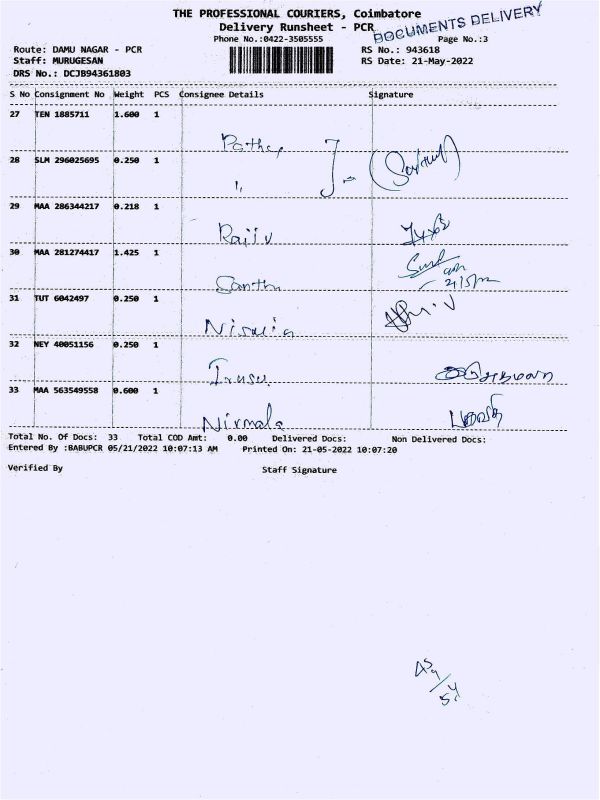 THE PROFESSIONAL COURIERS, Coimbatore
Delivery Runsheet - PCR
DOCUMENTS DELIVERY
Phone No.:0422-3505555 Page No.:3
Route: DAMU NAGAR - PCR RS No.: 943618
Staff: MURUGESAN RS Date: 21-May-2022
DRS No.: DCJB94361803
S No Consignment No Weight PCS Consignee Details Signature
27 TEN 1885711 1.600 1
28 SLM 296025695 0.250 1
29 MAA 286344217 0.218 1
Rajiv
30 MAA 281274417 1.425 1
31 TUT 6042497 0.250 1
32 NEY 40051156 0.250 1
33 MAA 563549558 0.600 1
Nirmala
Total No. Of Docs: 33 Total COD Amt: 0.00 Delivered Docs: Non Delivered Docs:
Entered By :BABUPCR 05/21/2022 10:07:13 AM Printed On: 21-05-2022 10:07:20
Verified By Staff Signature